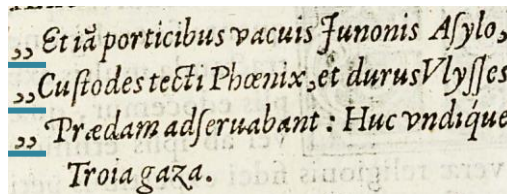 „ Et iã porticibus vacuis Junonis Aſylo,
„ Cuſtodes tecti Phœnix, et durus Vlyſſes
„ Prædam adſeruabant : Huc vndique
Troia gaza.